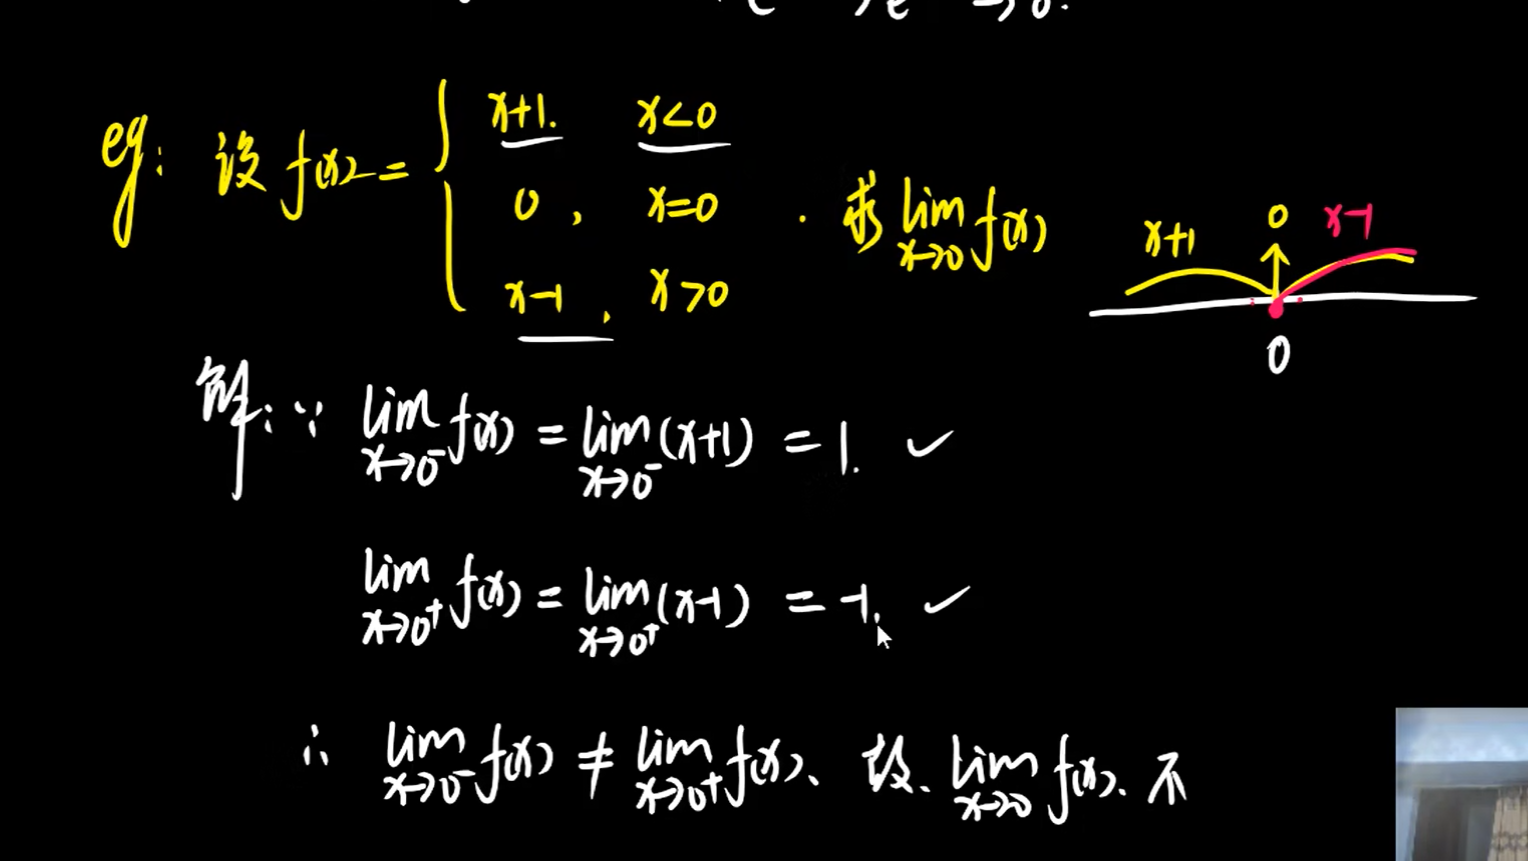 eg: 设 f(x) = { x+1. x<0
0, x=0 . 求 lim x→0 f(x)
x-1, x>0
x+1 0 x-1
0
解: ∵ lim x→0⁻ f(x) = lim x→0⁻ (x+1) = 1. ✓
lim x→0⁺ f(x) = lim x→0⁺ (x-1) = -1. ✓
∴ lim x→0⁻ f(x) ≠ lim x→0⁺ f(x)、故. lim x→0 f(x). 不